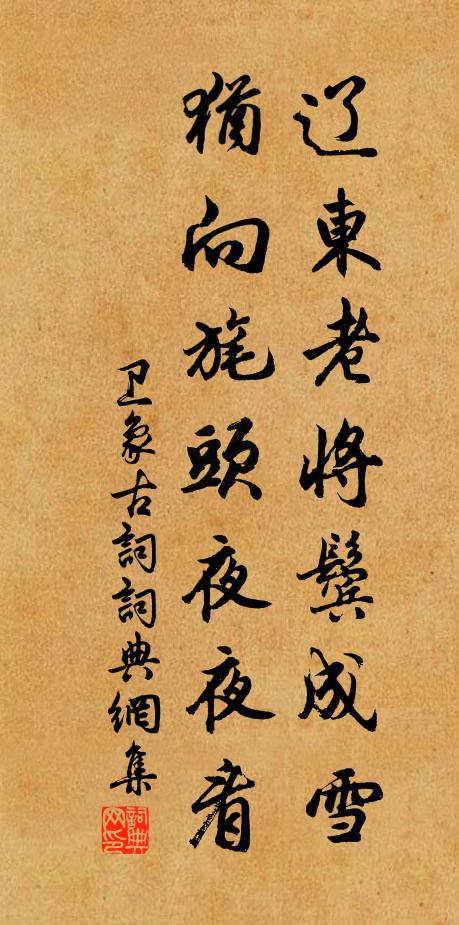 辽東老將鬢成雪
猶向旄頭夜夜看
卫象古詞詞典網集
詞典网印